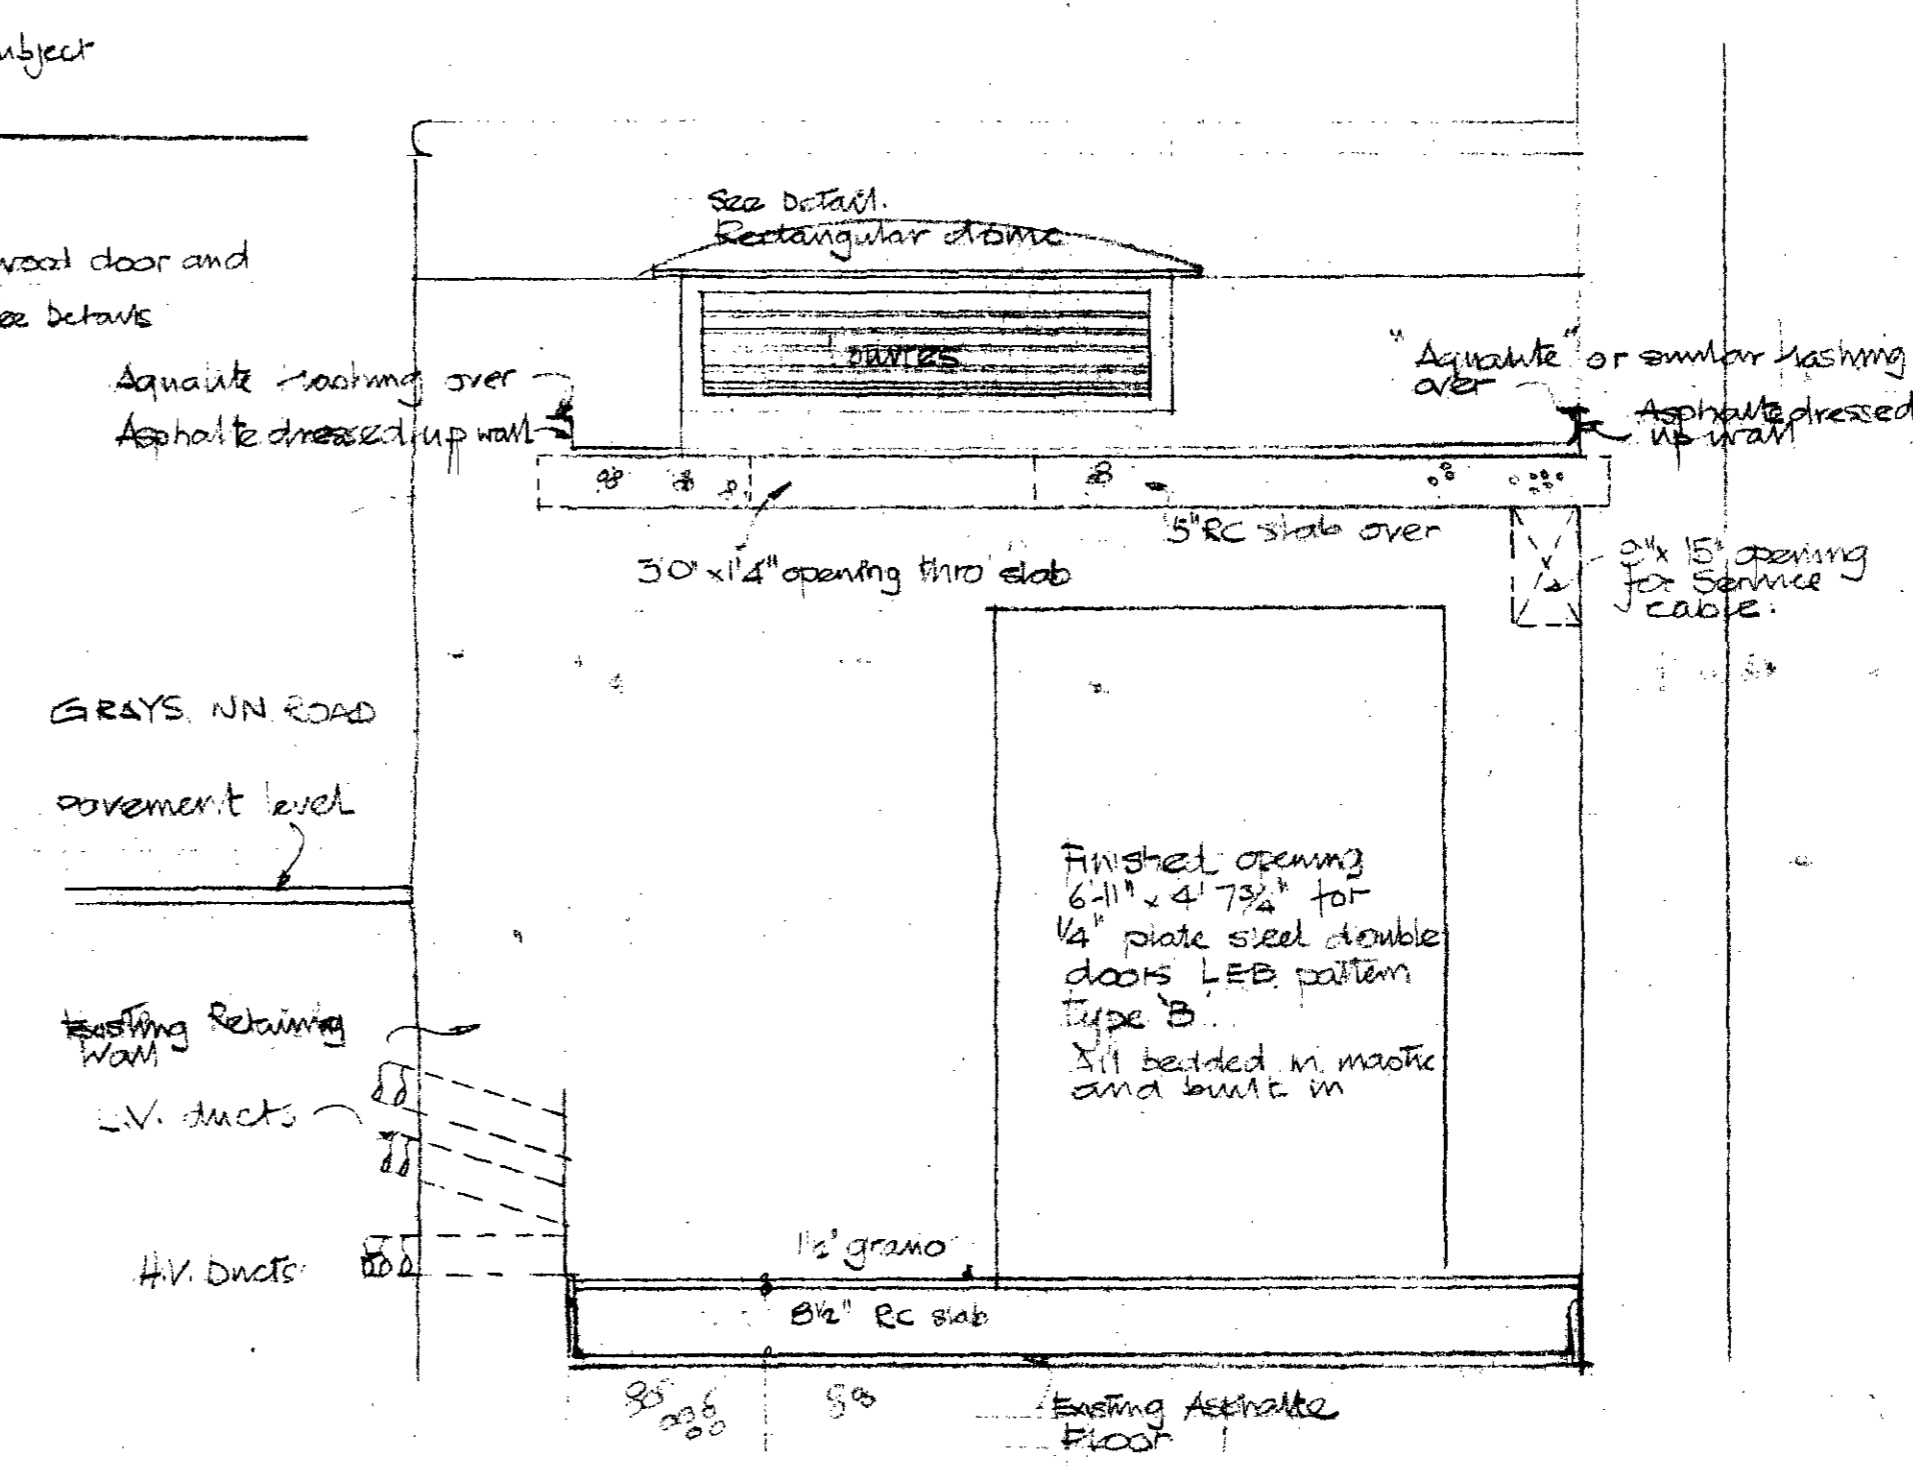 ubject
door and
See Details
See Detail.
Rectangular dome
Louvres
Aqualite flashing over
Asphalte dressed up wall
"Aqualite" or similar flashing
over
Asphalte dressed
up wall
5" RC slab over
3'0" x 1'4" opening thro' slab
9" x 15" opening
for service
cable.
GRAYS INN ROAD
pavement level
Finished opening
6'-11" x 4' 7¾" for
¼" plate steel double
doors LEB pattern
type 'B'.
All bedded in mastic
and built in
Existing Retaining
Wall
L.V. ducts
H.V. Ducts
1½" grano
8½" RC slab
Existing Asphalte
Floor